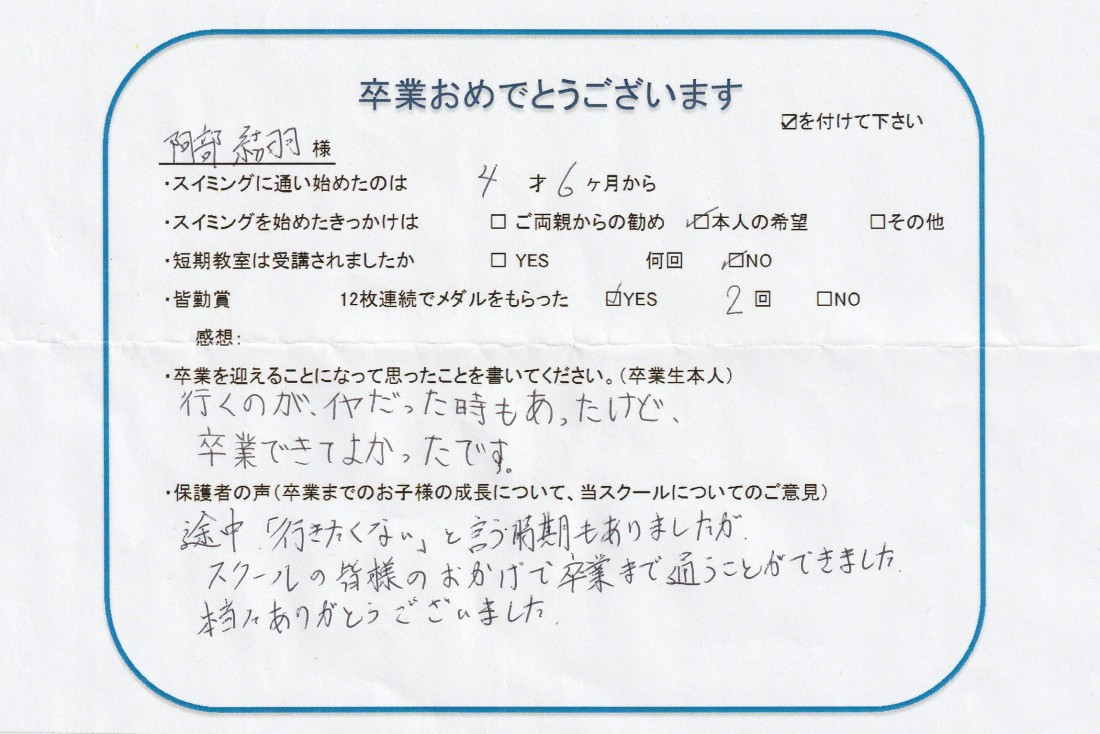 卒業おめでとうございます
☑を付けて下さい
阿部 結羽 様
・スイミングに通い始めたのは 4 才 6 ヶ月から
・スイミングを始めたきっかけは □ ご両親からの勧め ☑本人の希望 □その他
・短期教室は受講されましたか □ YES 何回 ☑NO
・皆勤賞 12枚連続でメダルをもらった ☑YES 2 回 □NO
感想：
・卒業を迎えることになって思ったことを書いてください。（卒業生本人）
行くのが、イヤだった時もあったけど、
卒業できてよかったです。
・保護者の声（卒業までのお子様の成長について、当スクールについてのご意見）
途中「行きたくない」と言う時期もありましたが、
スクールの皆様のおかげで卒業まで通うことができました。
本当にありがとうございました。